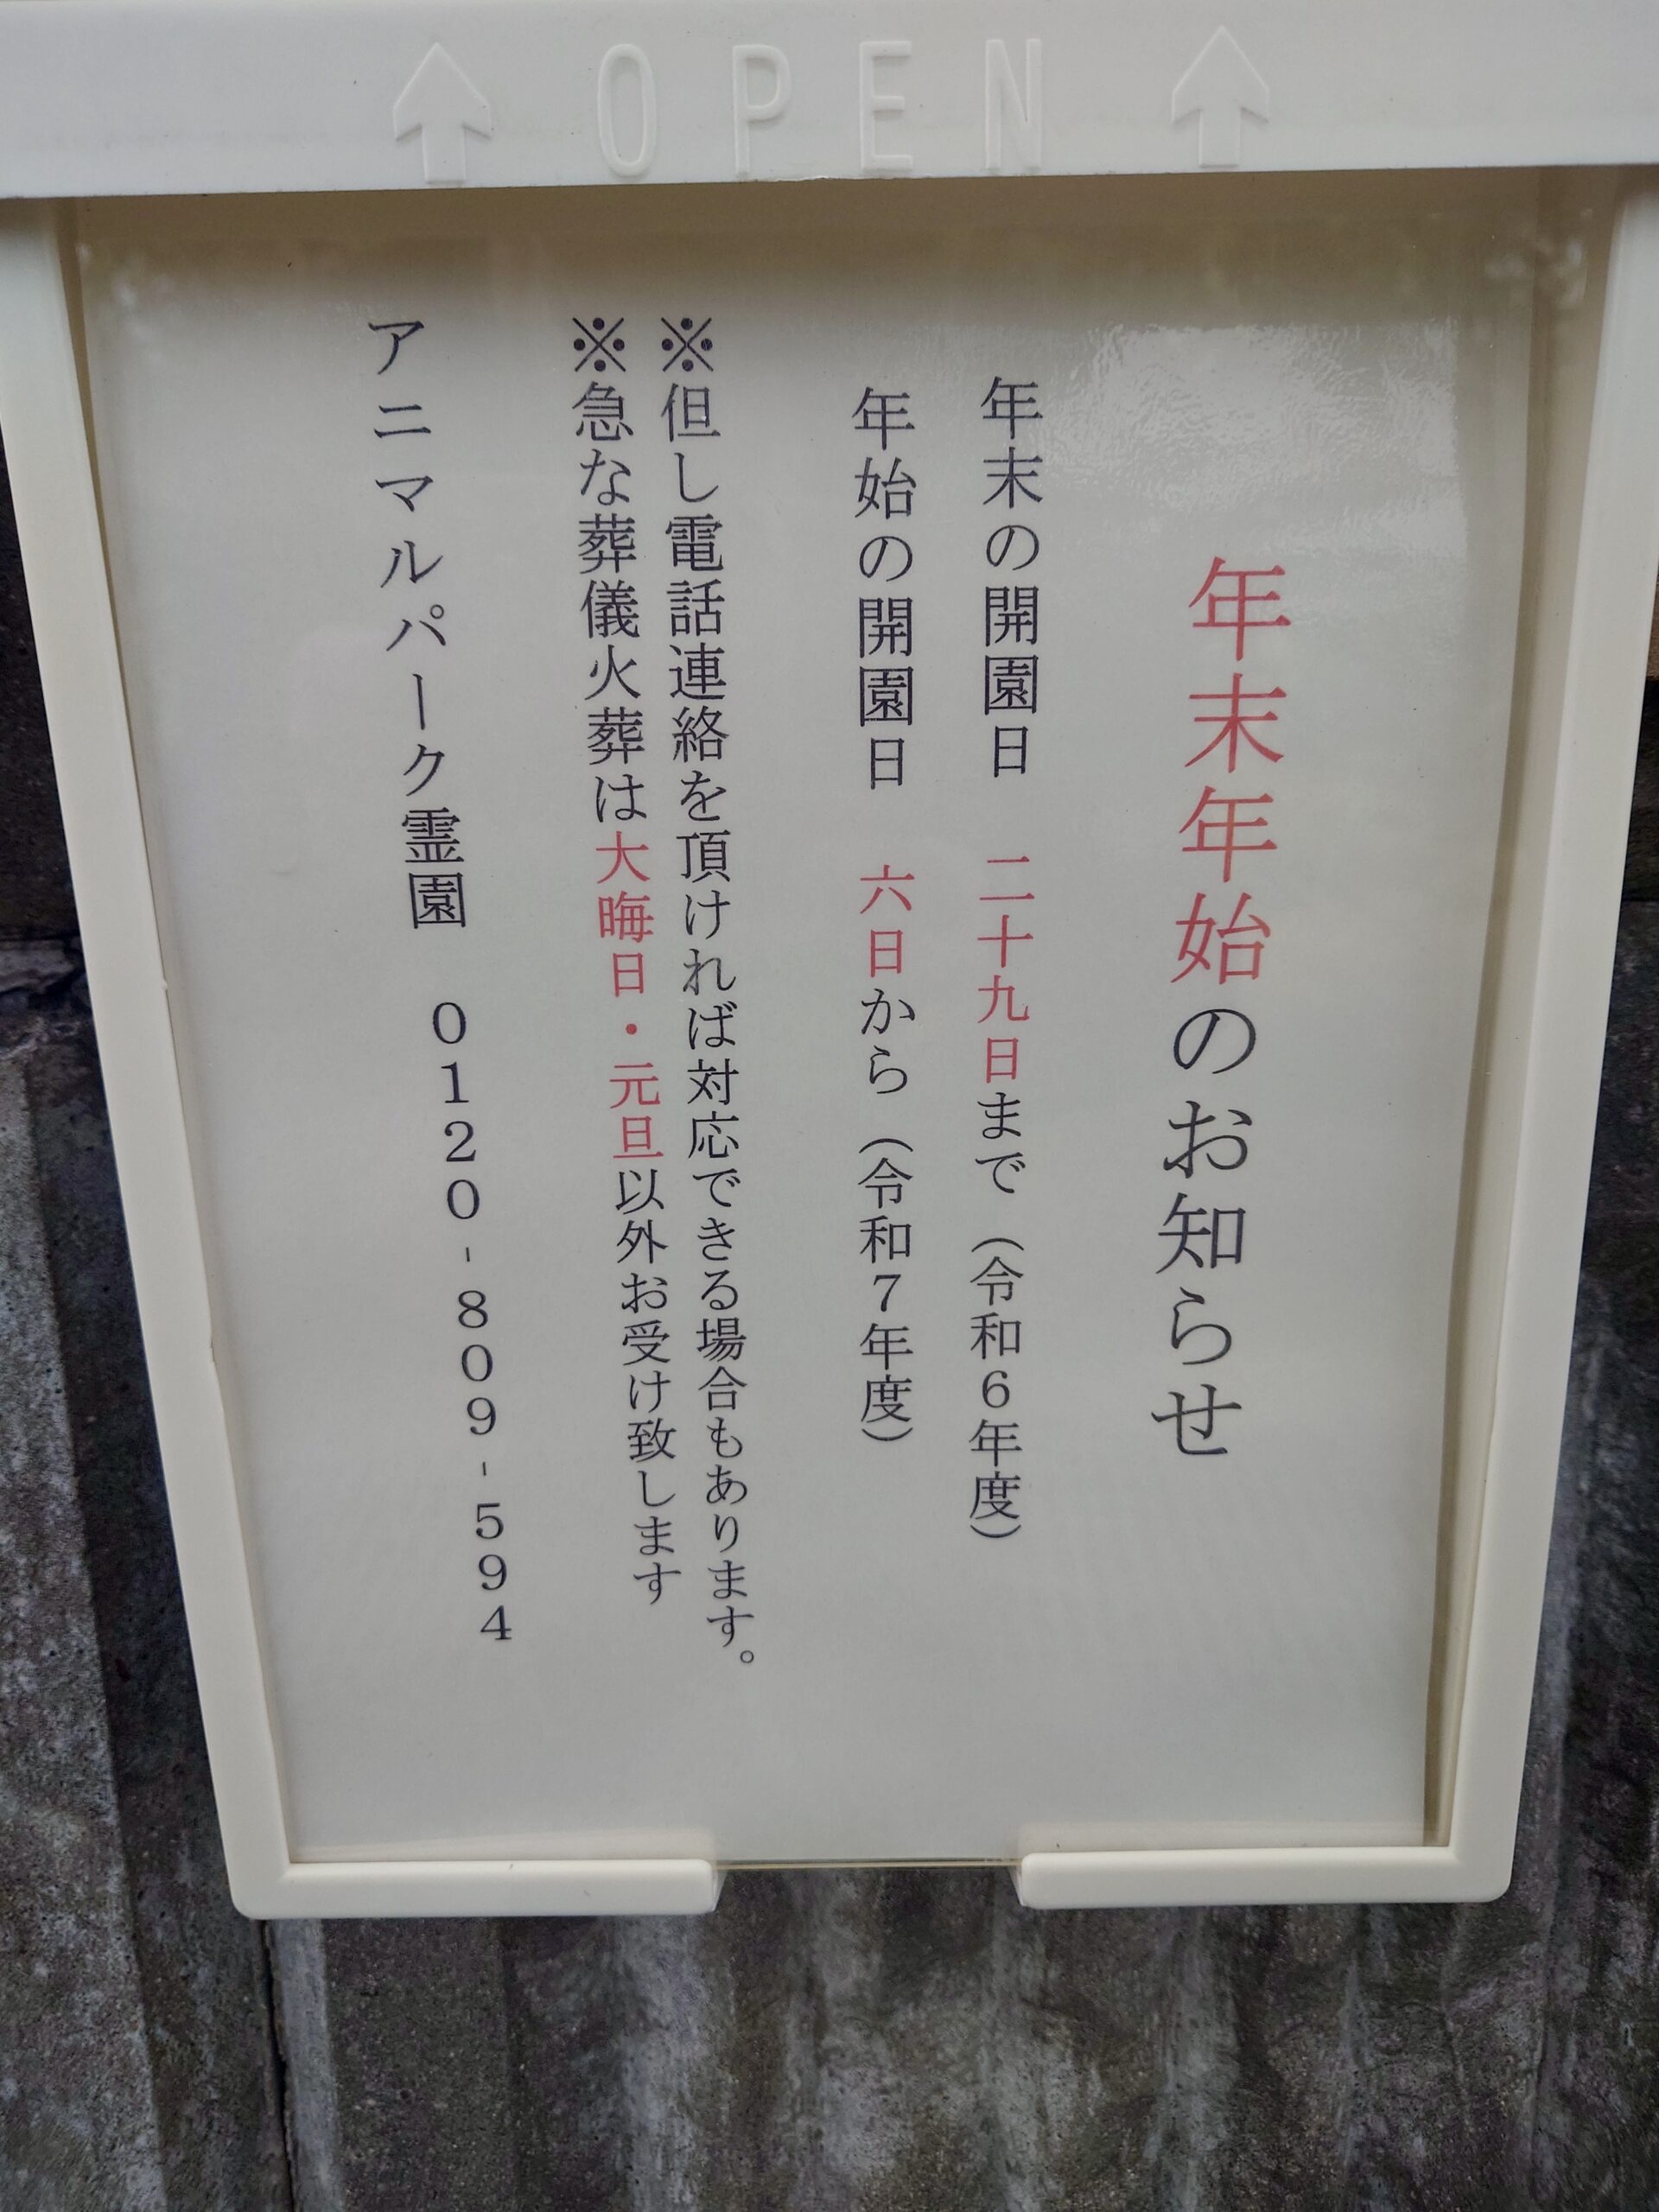 OPEN
年末年始のお知らせ
年末の開園日 二十九日まで（令和６年度）
年始の開園日 六日から（令和７年度）
※但し電話連絡を頂ければ対応できる場合もあります。
※急な葬儀火葬は大晦日・元旦以外お受け致します
アニマルパーク霊園 0120-809-594